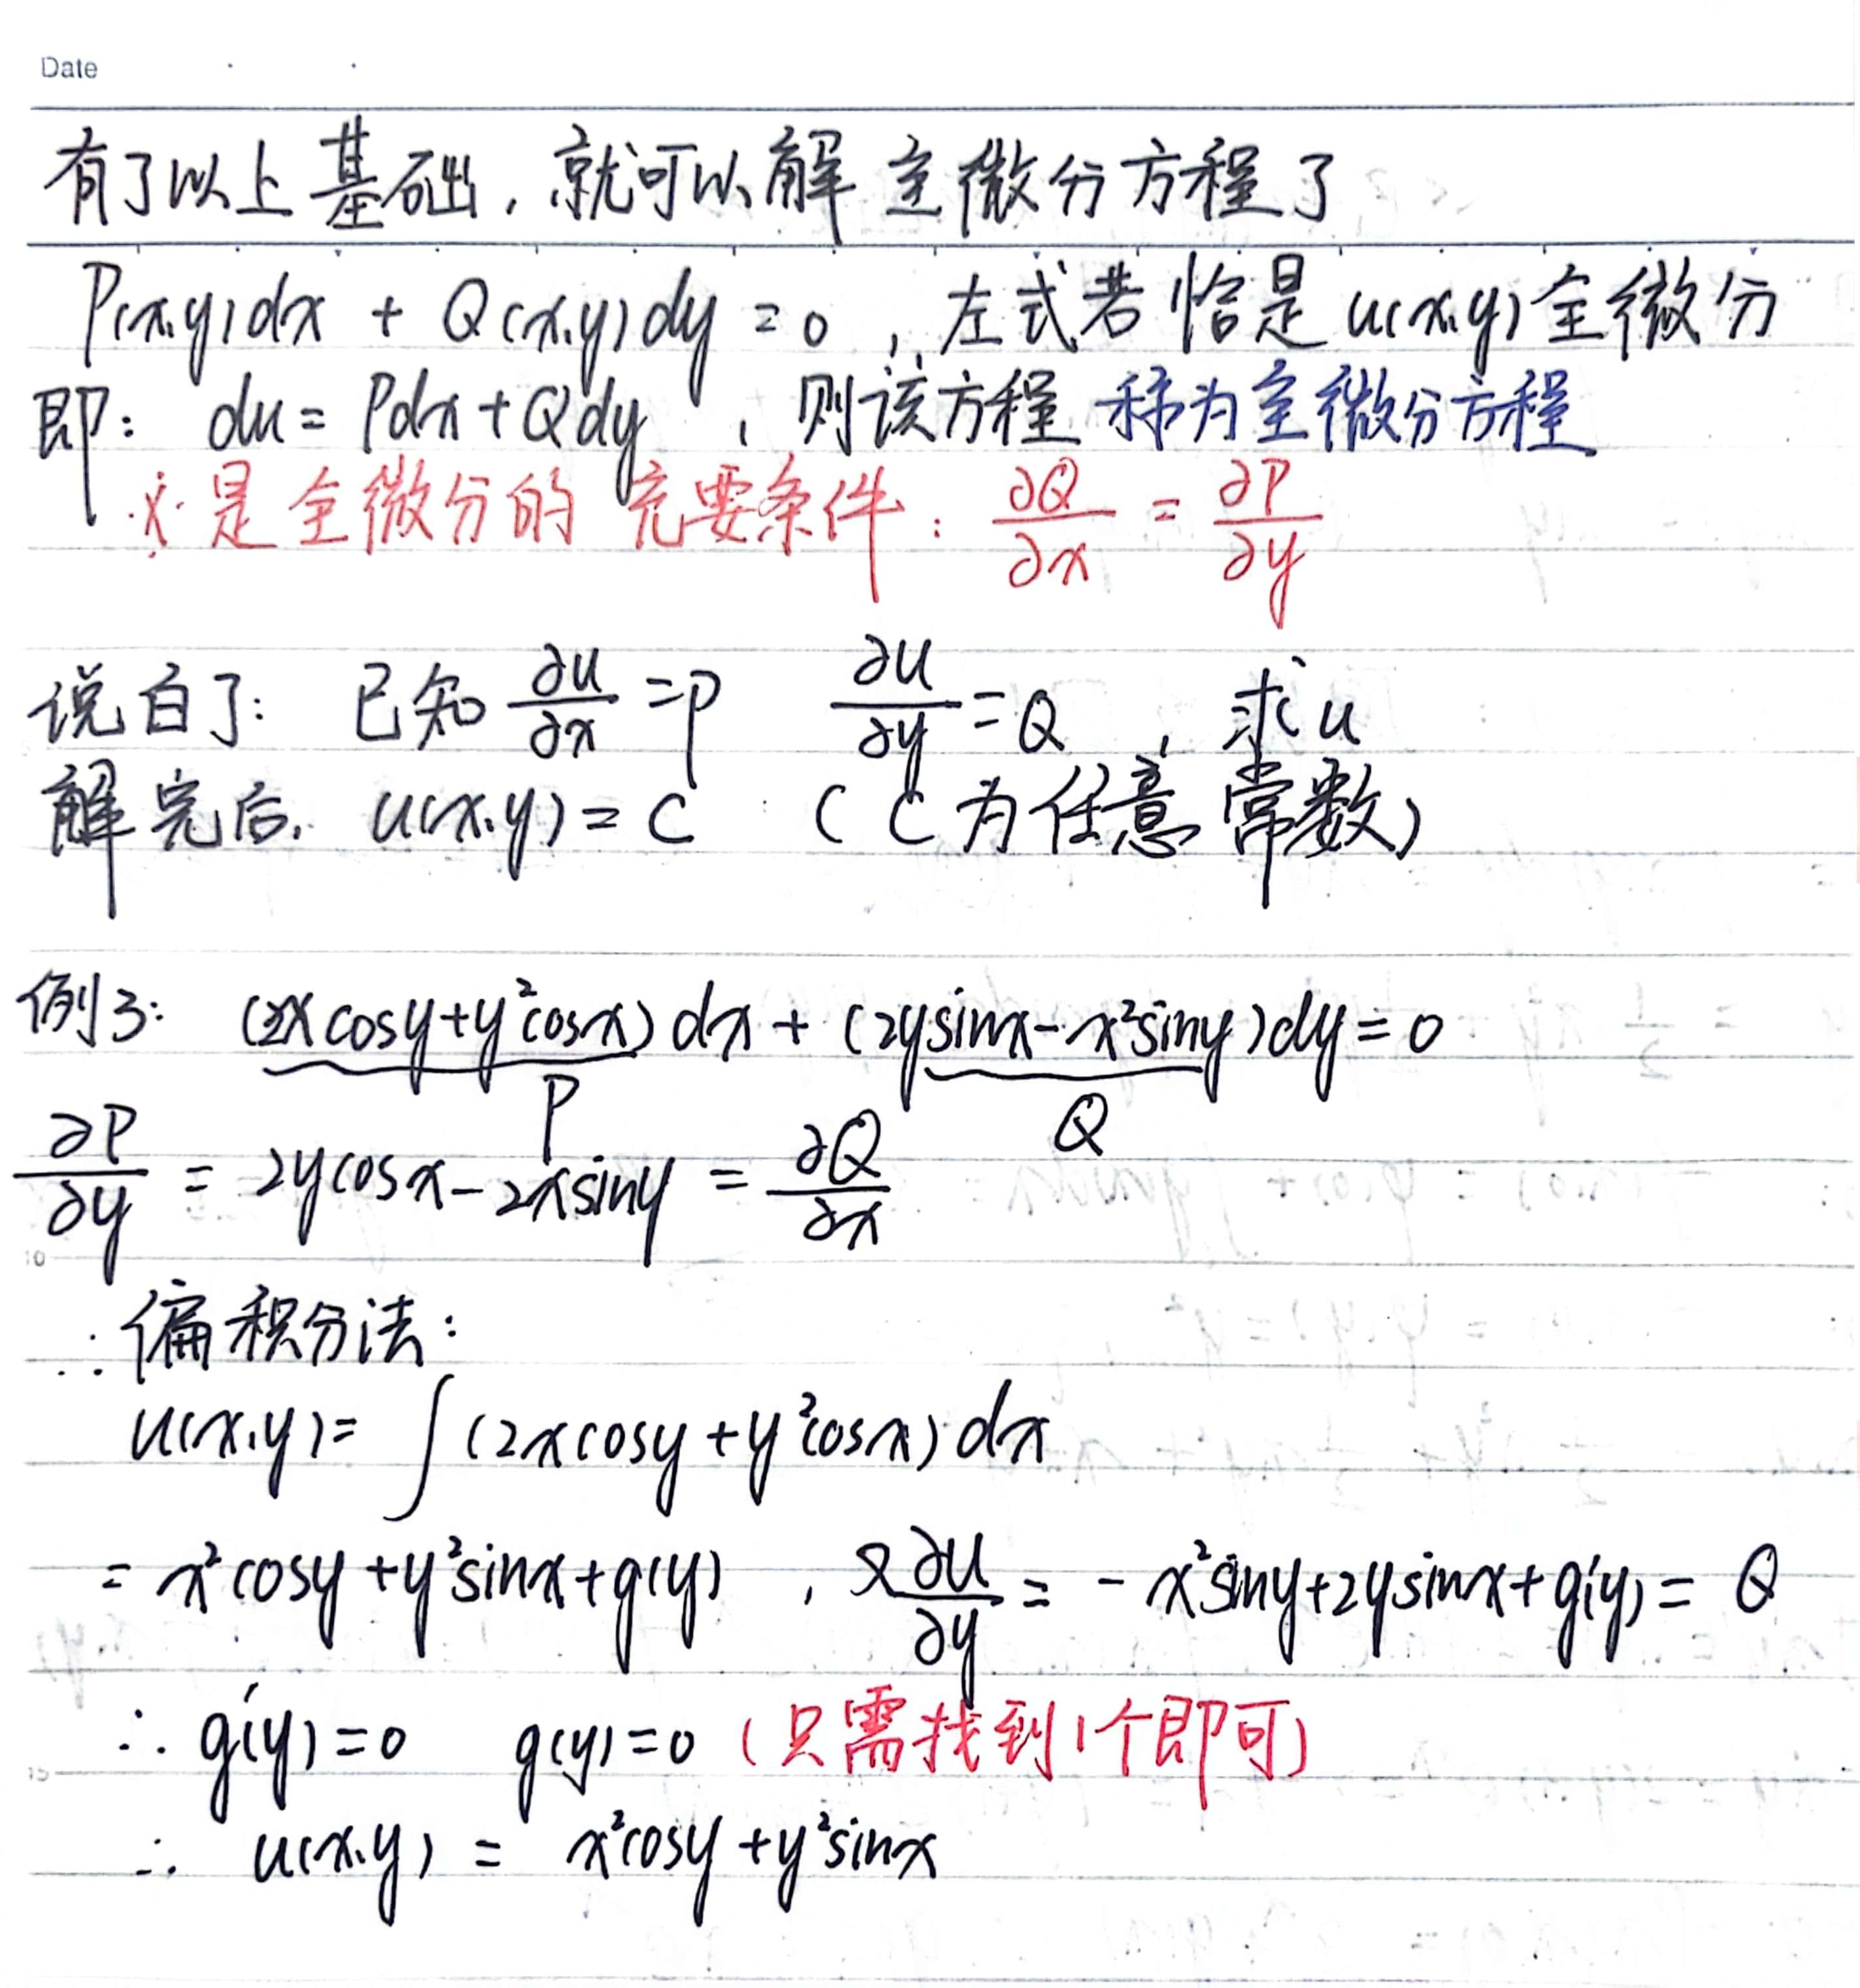 Date
有了以上基础，就可以解全微分方程了
P(x,y)dx + Q(x,y)dy = 0 ，左式若恰是 u(x,y) 全微分
即： du = Pdx + Qdy ，则该方程 称为全微分方程
※ 是全微分的 充要条件：∂Q/∂x = ∂P/∂y
说白了： 已知 ∂u/∂x = P ∂u/∂y = Q ，求 u
解完后， u(x,y) = C （C 为任意常数）
例3： (2x cosy + y²cosx) dx + (2ysinx - x²siny) dy = 0
P Q
∂P/∂y = 2ycosx - 2xsiny = ∂Q/∂x
10
∴ 偏积分法：
u(x,y) = ∫ (2xcosy + y²cosx) dx
= x²cosy + y²sinx + g(y) ，又 ∂u/∂y = - x²siny + 2ysinx + g'(y) = Q
∴ g'(y) = 0 g(y) = 0 （只需找到1个即可）
15
∴ u(x,y) = x²cosy + y²sinx